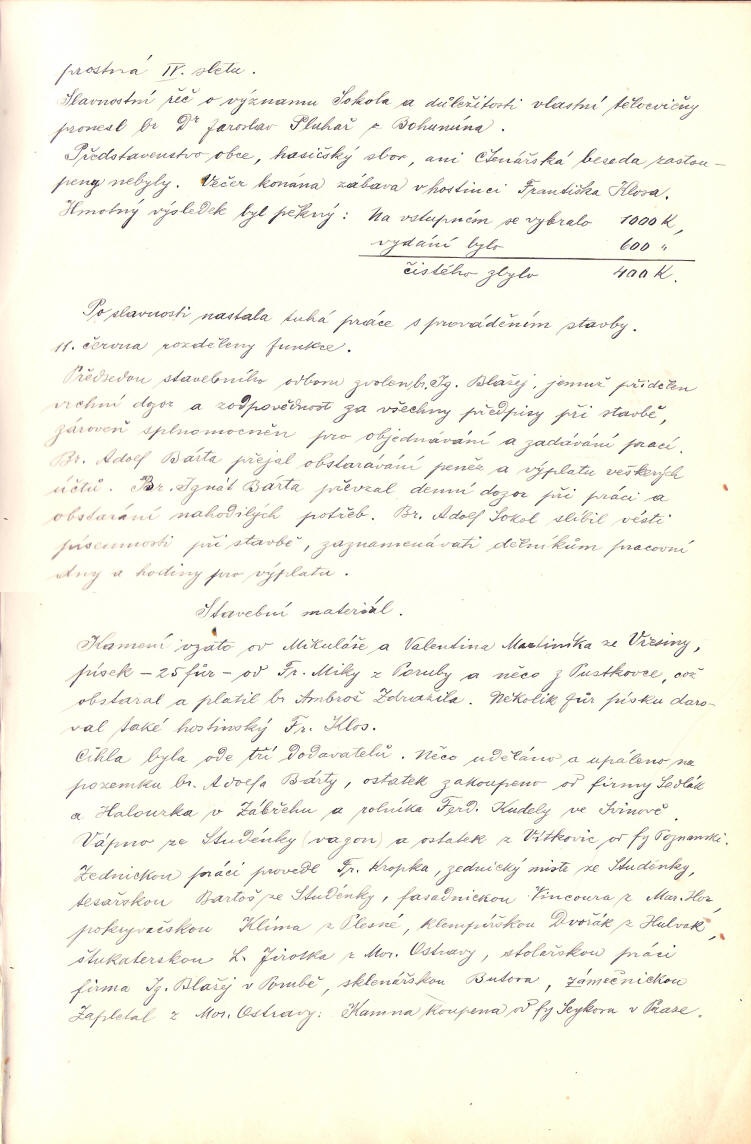 prostná IV. sletu.
Slavnostní řeč o významu Sokola a důležitosti vlastní tělocvičny
pronesl br Dr Jaroslav Pluhař z Bohumína.
Představenstvo obce, hasičský sbor, ani Čtenářská beseda zastou-
peny nebyly. Večer konána zábava v hostinci Františka Klosa.
Hmotný výsledek byl pěkný: Na vstupném se vybralo 1000 K,
vydání bylo 600 "
čistého zbylo 400 K.
Po slavnosti nastala tuhá práce s prováděním stavby.
11. června rozděleny funkce.
Předsedou stavebního odboru zvolen br. Ig. Blažej, jemuž přidělen
vrchní dozor a zodpovědnost za všechny předpisy při stavbě,
zároveň splnomocněn pro objednávání a zadávání prací.
Br. Adolf Bárta přejal obstarávání peněz a výplatu veškerých
účtů. Br. Ignát Bárta převzal denní dozor při práci a
obstarání nahodilých potřeb. Br. Adolf Sokol slíbil vésti
písemnosti při stavbě, zaznamenávati dělníkům pracovní
dny a hodiny pro výplatu.
Stavební materiál.
Kamení vzato od Mikuláše a Valentina Martiníka ze Vřesiny,
písek - 25 fůr - od Fr. Miky z Poruby a něco z Pustkovce, což
obstaral a platil br Ambrož Zdražila. Několik fůr písku daro-
val také hostinský Fr. Klos.
Cihla byla ode tří dodavatelů. Něco uděláno a upáleno na
pozemku br. Adolfa Bárty, ostatek zakoupeno od firmy Sedlák
a Halourka v Zábřehu a rolníka Ferd. Kudely ve Svinově.
Vápno ze Studénky (vagon) a ostatek z Vítkovic od fy Poznanski.
Zednickou práci provedl Fr. Kropka, zednický mistr ze Studénky,
tesařskou Bartoš ze Studénky, fasádnickou Vincoura z Mar. Hor,
pokrývačskou Klíma z Plesné, klempířskou Dvořák z Hulvák,
štukaterskou L. Jirotka z Mor. Ostravy, stolařskou práci
firma Ig. Blažej v Porubě, sklenářskou Butora, zámečnickou
Zapletal z Mor. Ostravy: Kamna koupena od fy Sykora v Praze.